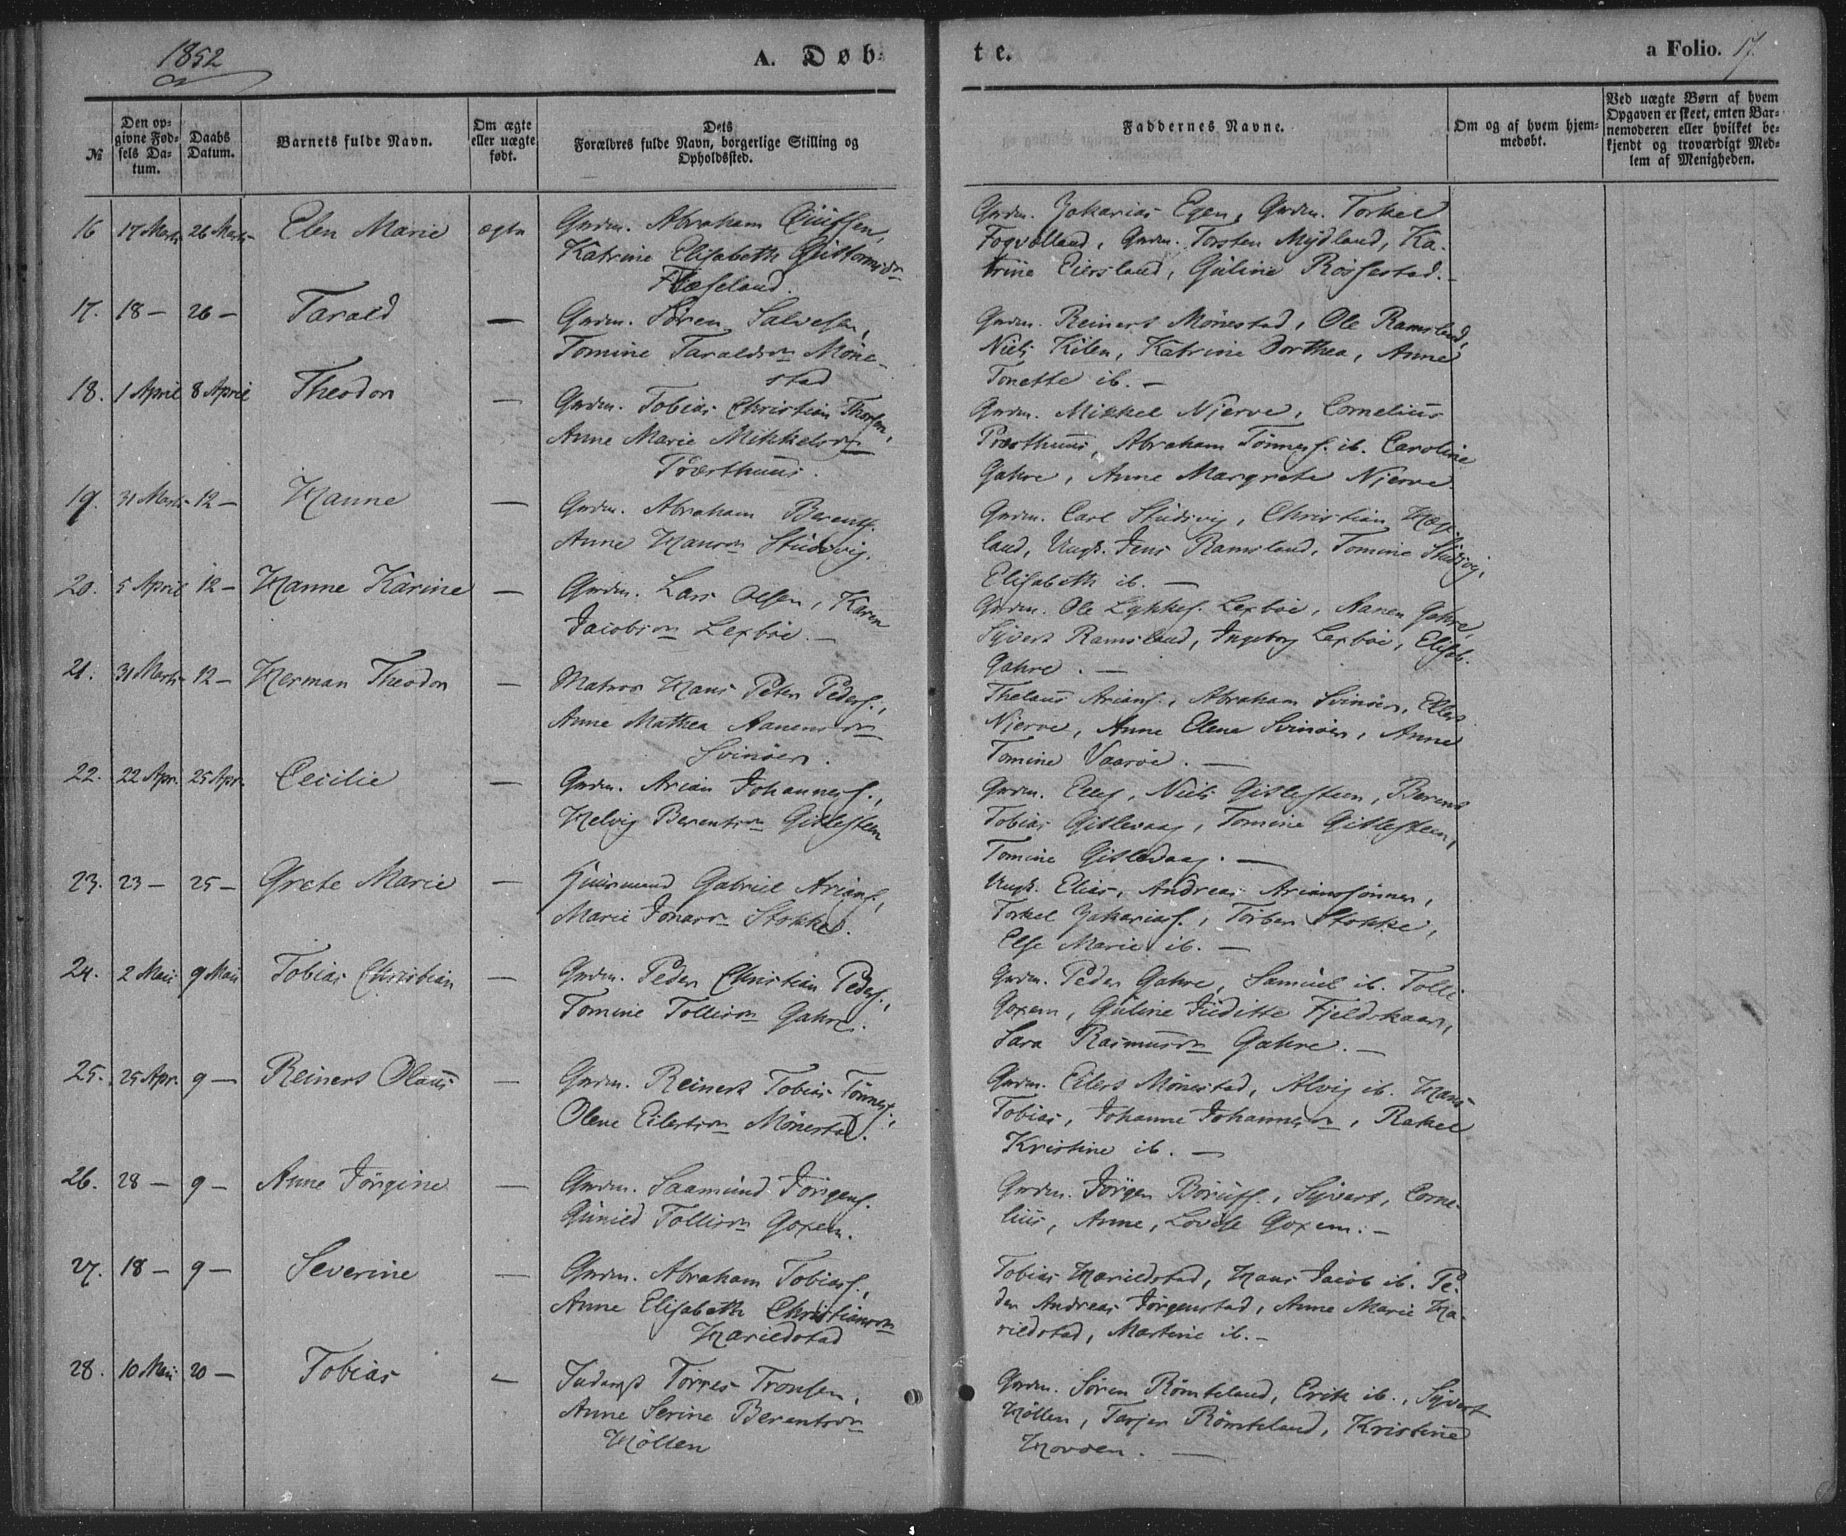 1852
A. Døb-
te.
a Folio. 17.
№
Den op-
givne Fød-
sels Da-
tum.
Daabs
Datum.
Barnets fulde Navn.
Om ægte
eller uægte
født.
Dets
Forældres fulde Navn, borgerlige Stilling og
Opholdssted.
Faddernes Navne.
Om og af hvem hjem-
medøbt.
Ved uægte Børn af hvem
Opgaven er skeet, enten Bar-
nemoderen eller hvilket be-
kjendt og troværdigt Med-
lem af Menigheden.
16 17 Marts 26 Marts Elen Marie ægte Grdm. Abraham
Katrine Elisabeth
Grdm. Zakarias Egen, Grdm. Torkel
Grdm. Torsten Mydland, Ka-
trine Eiersland, Guline Røssestad.
17. 18 — 26 — Tarald — Grdm. Søren Salvesen,
Tomine Taraldsdn Møne-
stad
Grdm. Reinert Mønestad, Ole Ramsland,
Niels Kilen, Katrine Dorthea, Anne
Tonette ib. —
18. 1 April 8 April Theodor — Grdm. Tobias Christian
Anne Marie Mikkelsdn
Grdm. Mikkel Njerve, Cornelius
Præsthuus, Abraham Tønnes. ib. Caroline
Gahre, Anne Margrete Njerve
19. 31 Marts 12 — Hanne — Grdm. Abraham Berents.
Anne Hansdn Studevig.
Grdm. Carl Studevig, Christian
land, Ungk. Jens Ramsland, Tomine Studevig,
Elisabeth ib. —
20. 5 April 12 — Hanne Karine — Grdm. Lars Olsen, Karen
Jacobsdn Lexbøe. —
Grdm. Ole Lykkes. Lexbøe, Aanen Gahre,
Syvert Ramsland, Ingeborg Lexbøe, Elisab.
Gahre. —
21. 31 Marts 12 — Herman Theodor — Matros Hans Peter Peders.,
Anne Mathea Aanensdn
Svinøer.
Thelaus Arians., Abraham Svinøer, Ellert
Njerve, Anne Elene Svinøer, Anne
Tomine Vaarøe. —
22. 22 Apr. 25 Apr. Cecilie — Grdm. Arian Johannes.,
Helvig Berentsdn Gislesteen
Grdm. Niels Gislesteen, Berent
Tobias Gislevaag, Tomine Gislesteen,
Tomine Gislevaag. —
23. 23 — 25 — Grete Marie — Huusmand Gabriel Arians.,
Marie Jonasdn Stokke.
Ungk. Elias, Andreas Arianssønner,
Torkel Zakarias., Torber Stokke,
Else Marie ib. —
24. 2 Mai 9 Mai Tobias Christian — Grdm. Peder Christian Peders.,
Tomine Tollisdn Gahre.
Grdm. Peder Gahre, Samuel ib. Tolli
Goxem, Guline Juditte Fjeldskaar,
Sara Rasmusdn Gahre. —
25. 25 Apr. 9 — Reinert Olaus — Grdm. Reinert Tobias Tønnes.,
Olene Eilertsdn Mønestad.
Grdm. Eilert Mønestad, Alvig ib. Hans
Tobias, Johanne Johannesdn, Rakel
Kristine ib. —
26. 28 — 9 — Anne Jørgine — Grdm. Saamund Jørgens.
Gunild Tollisdn Goxem.
Grdm. Jørgen Syvert, Corne-
lius, Anne, Lovise Goxem. —
27. 18 — 9 — Severine — Grdm. Abraham Tobias.,
Anne Elisabeth Christiansdn
Harildstad
Tobias Harildstad, Hans Jacob ib. Pe-
der Andreas Jørgenstad, Anne Marie Ha-
rildstad, Martine ib. —
28. 10 Mai 20 — Tobias — Inderst Torres Tronsen,
Anne Serine Berentsdn
Høllen
Grdm. Søren Rømteland, Erik ib., Syvert
Høllen, Tarjer Rømteland, Kristine
Hovden. —